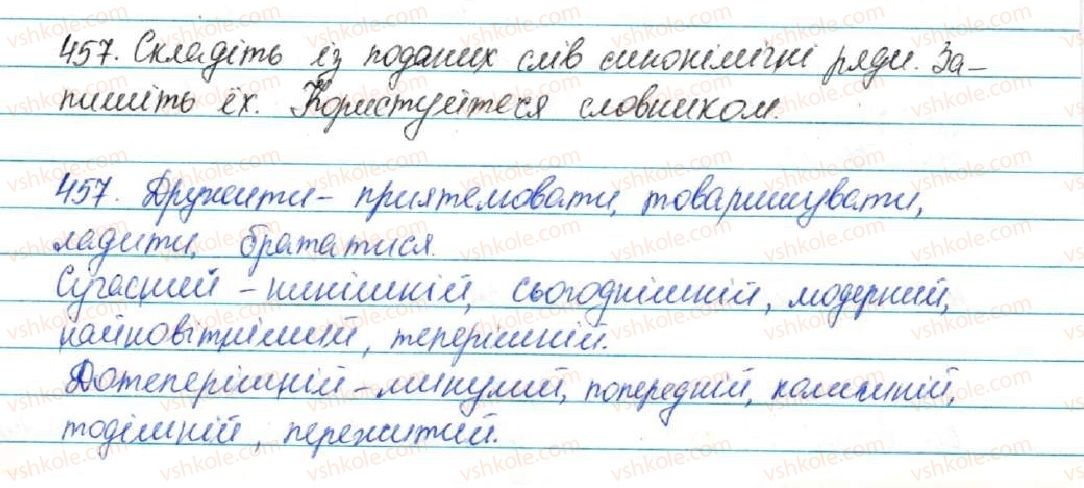 457. Складіть із поданих слів синонімічні ряди. За-
пишіть їх. Користуйтеся словником.
457. Дружити – приятелювати, товаришувати,
ладити, брататися.
Сучасний – нинішній, сьогоднішній, модерний,
найновітніший, теперішній.
Дотеперішній – минулий, попередній, колишній,
тодішній, пережитий.